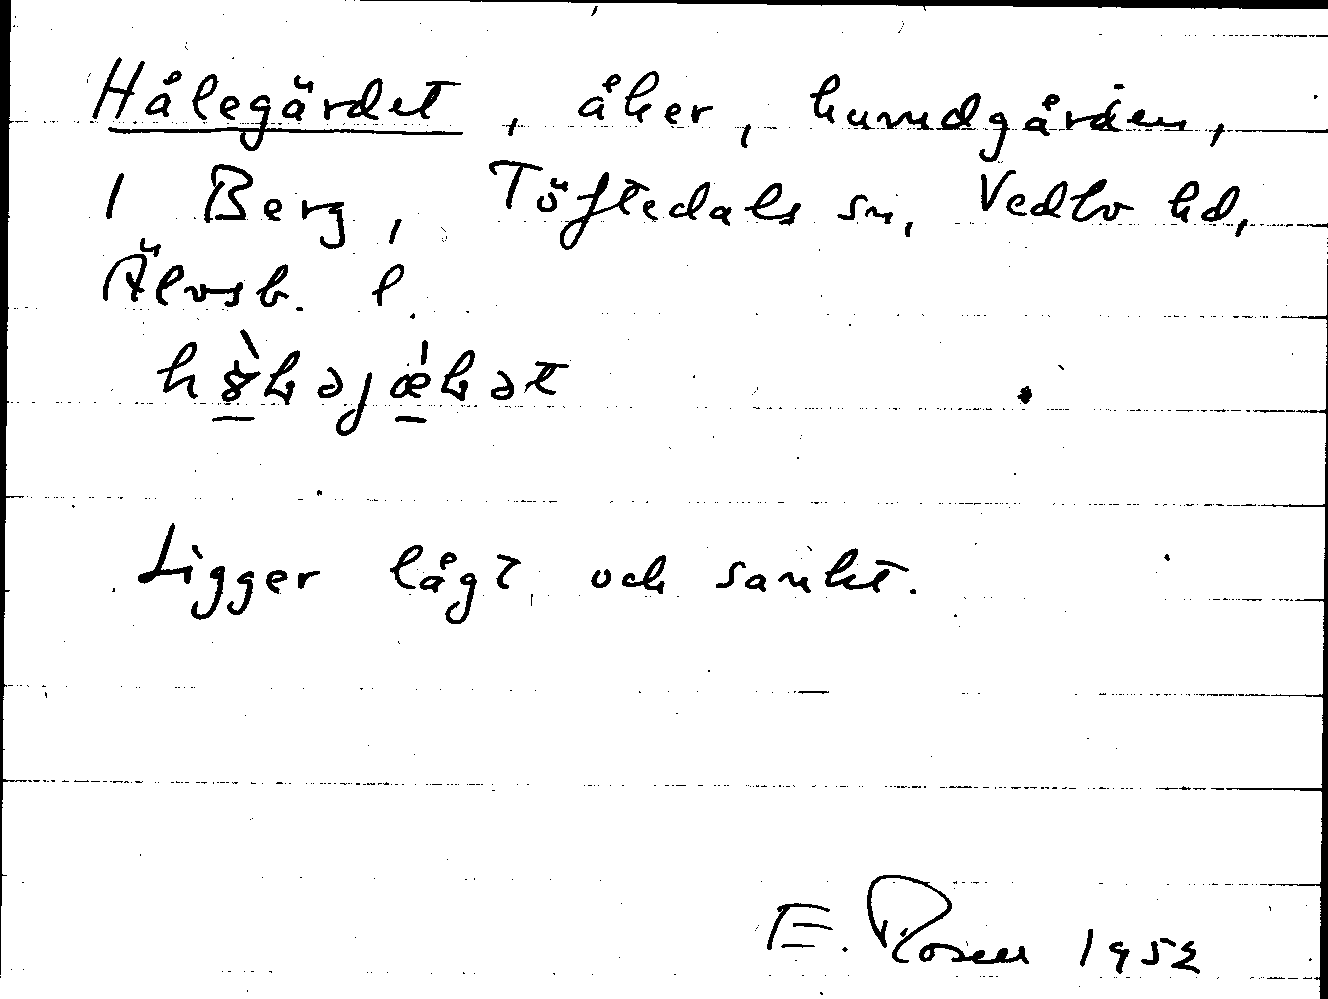 Hålegärdet, åker, huvudgården,
1 Berg, Töftedals sn, Vedbo hd,
Älvsb. l.
Ligger lågt och sankt.
E. Rosén 1952